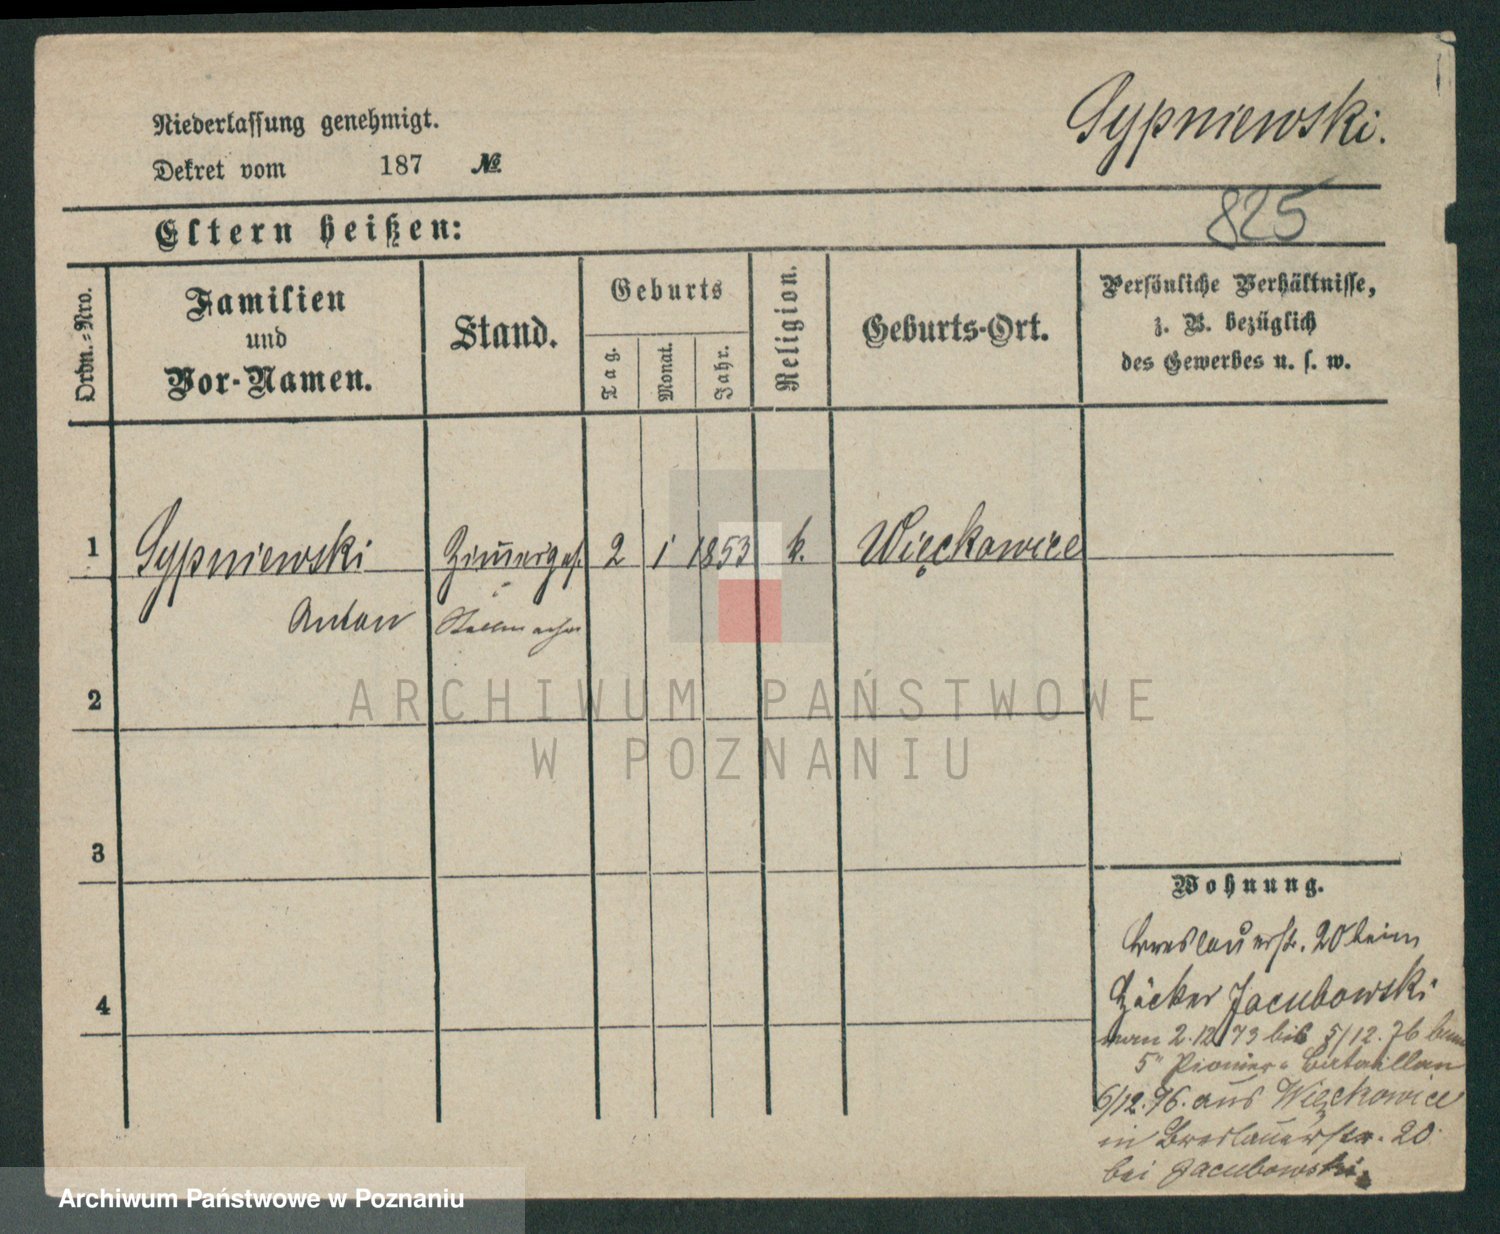 Sypniewski.
Niederlassung genehmigt.
Dekret vom 187 №
825
Eltern heißen:
Ordn.-Nro.
Familien
und
Vor-Namen.
Stand.
Geburts
Tag.
Monat.
Jahr.
Religion.
Geburts-Ort.
Persönliche Verhältnisse,
z. B. bezüglich
des Gewerbes u. s. w.
1 Sypniewski Zim̅erges. 2 1 1853 k. Więckowice
Anton Stellmacher
2
3
4
Wohnung.
Breslauerstr. 20 beim
Bäcker Jacubowski
2.12.73 bis 5/12.76 beim
5" Pionier-Bataillon
6/12.76. aus Więckowice
in Breslauerstr. 20.
bei Jacubowski.
ARCHIWUM PAŃSTWOWE
W POZNANIU
Archiwum Państwowe w Poznaniu